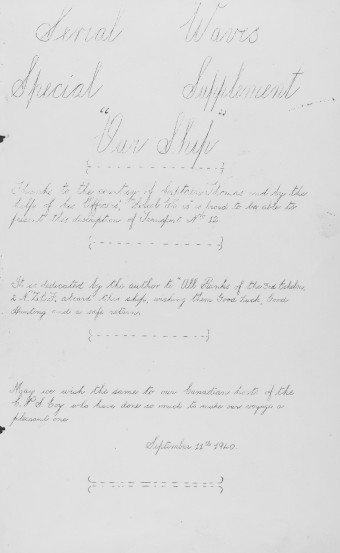 Serial Waves
Special Supplement
"Our Ship"
Thanks to the courtesy of Captain Thomas and by the
help of his Officers, "Serial Waves" is proud to be able to
present this description of Transport No 12.
It is dedicated by the author to "All Ranks of the 3rd Echelon
2 N.Z.E.F. aboard this ship, wishing them Good Luck, Good
Hunting and a safe return.
May we wish the same to our Canadian host of the
C.P.S. Coy who have done so much to make our voyage a
pleasant one
September 11th 1940.